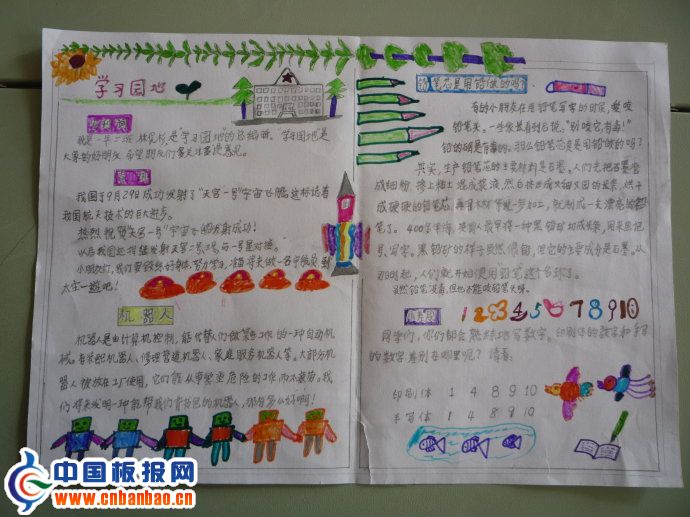 学习园地
我是一年二班 林见杉,是学习园地的总编辑。 学习园地是
大家的好朋友,希望朋友们多关注多提意见。
我国于9月29日成功发射了“天宫一号”宇宙飞船,这标志着
我国航天技术的巨大进步。
热烈祝贺天宫一号宇宙飞船发射成功!
以后我国还将猛发射天宫二号、3号,与一号星对接。
小朋友们,我们要锻炼好身体,努力学习,准备将来做一名宇航员到
太空一趟吧!
机器人
机器人是由计算机控制,能代替人们做某些工作的一种自动机
械。有采矿机器人、修理管道机器人、家庭服务机器人等。大部分机
器人被放在工厂使用,它们能从事繁重危险的工作而不疲劳。我
们将来发明一种能帮我们背书包的机器人,那有多么好啊!
铅笔芯是用铅做的吗?
有的小朋友在用铅笔写字的时候,爱咬
铅笔头。一些家长看到后说:“别咬它,有毒!”
铅的确是有毒的。那么铅笔芯真是用铅做的吗?
其实,生产铅笔芯的主要材料是石墨。人们先把石墨磨
成细粉,掺上粘土,混成浆液,然后挤压成又细又圆的长条,烘干
成硬硬的铅笔芯,再与木材等进一步加工,就制成一支漂亮的铅
笔了。400多年前,英国人最早将一种黑铅切成长条,用来画记
号、写字。黑铅矿的样子虽然像铅,但它的主要成分是石墨。从
那时起,人们就开始使用铅笔这个名称了。
虽然铅笔没毒,但也不能咬铅笔头呀。
12345678910
同学们,你们都会熟练地写数字。印刷体的数字和手写
的数字差别在哪里呢?请看。
印刷体 1 4 8 9 10
手写体 1 4 8 9 10
中国板报网
www.cnbanbao.cn